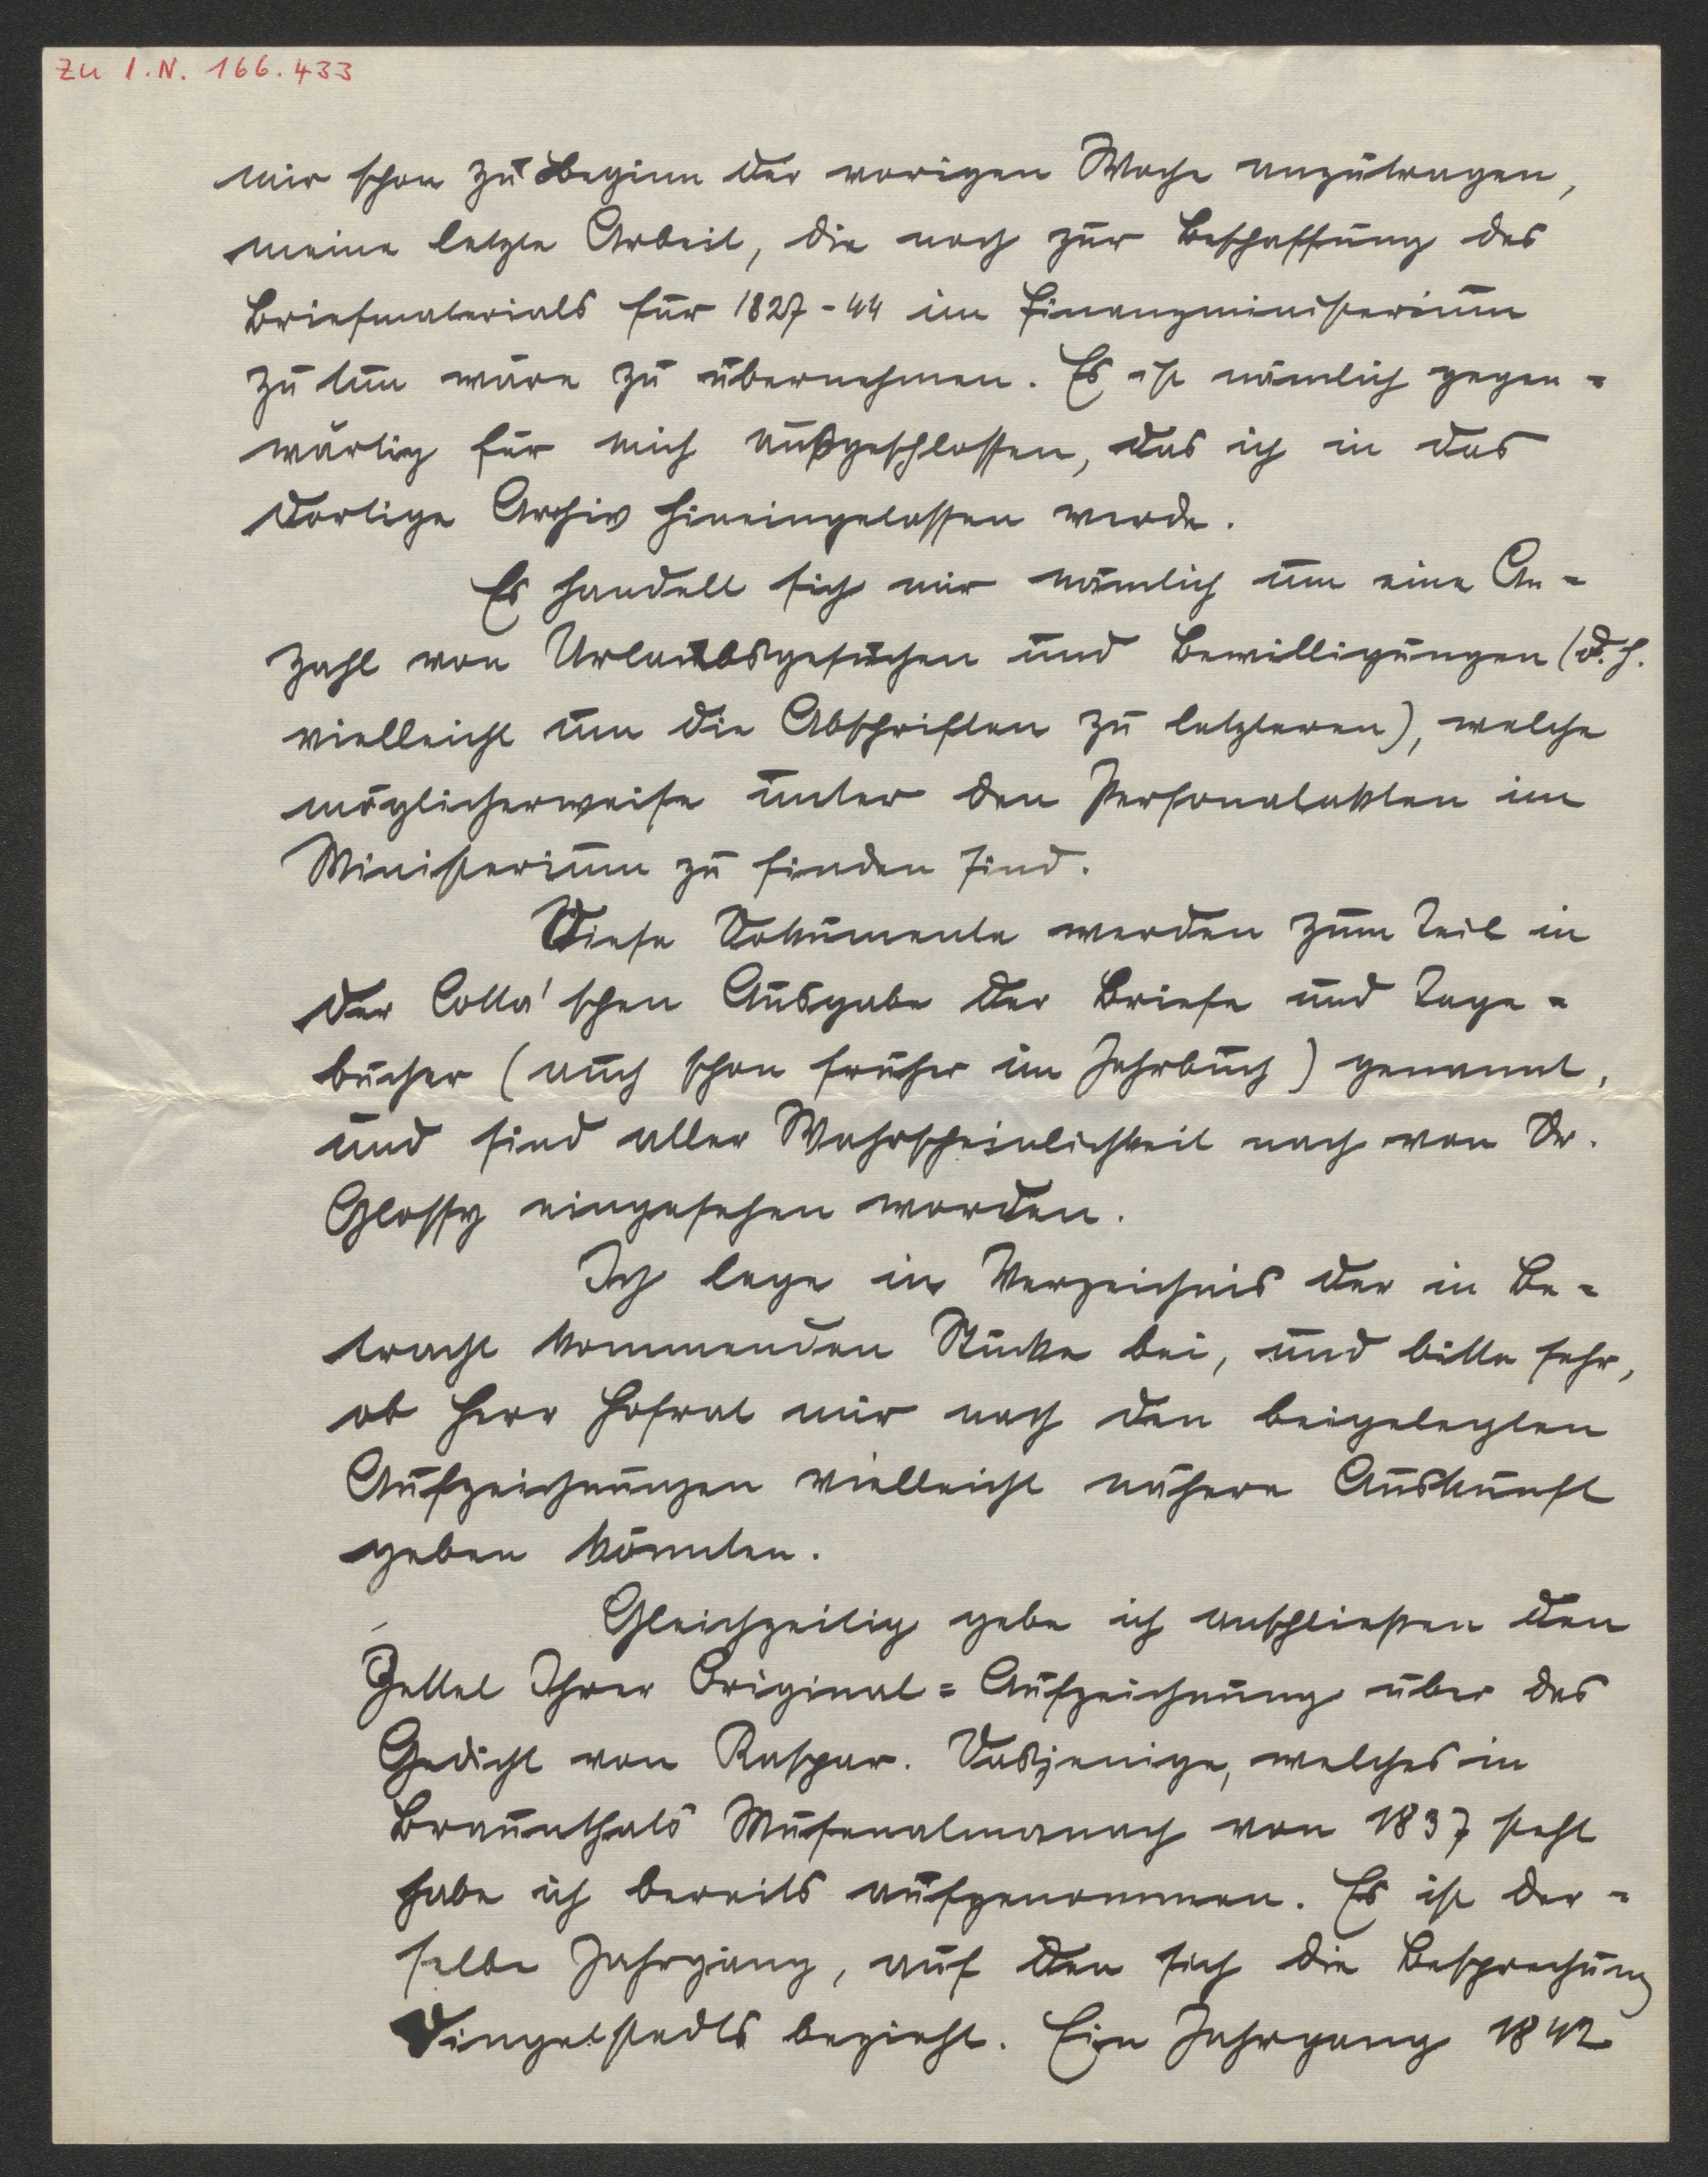 Zu I.N. 166.433
mir schon zu Beginn der vorigen Woche anzutragen,
meine letzte Arbeit, die noch zur Beschaffung des
Briefmaterials für 1827-44 im Finanzministerium
zu tun wäre zu übernehmen. Es ist nämlich gegen=
wärtig für mich außgeschlossen, das ich in das
dortige Archiv hineingelassen werde.
Es handelt sich mir nämlich um eine An=
zahl von Urlaubsgesuchen und Bewilligungen (d.h.
vielleicht um die Abschriften zu letzteren), welche
möglicherweise unter den Personalakten im
Ministerium zu finden sind.
Diese Dokumente werden zum Teil in
der Cotta'schen Ausgabe der Briefe und Tage=
bücher (auch schon früher im Jahrbuch) genannt,
und sind aller Wahrscheinlichkeit nach von Dr.
Glossy eingesehen worden.
Ich lege in Verzeichnis der in Be=
tracht kommenden Stücke bei, und bitte sehr,
ob Herr Hofrat mir nach den beigelegten
Aufzeichnungen vielleicht nähere Auskunft
geben könnten.
Gleichzeitig gebe ich anschließen den
Zettel Ihrer Original=Aufzeichnung über das
Gedicht von Kaspar. Dasjenige, welches in
Braunthals Musenalmanach von 1837 steht
habe ich bereits aufgenommen. Es ist der=
selbe Jahrgang, auf den sich die Besprechung
Dingelstedts bezieht. Ein Jahrgang 1842